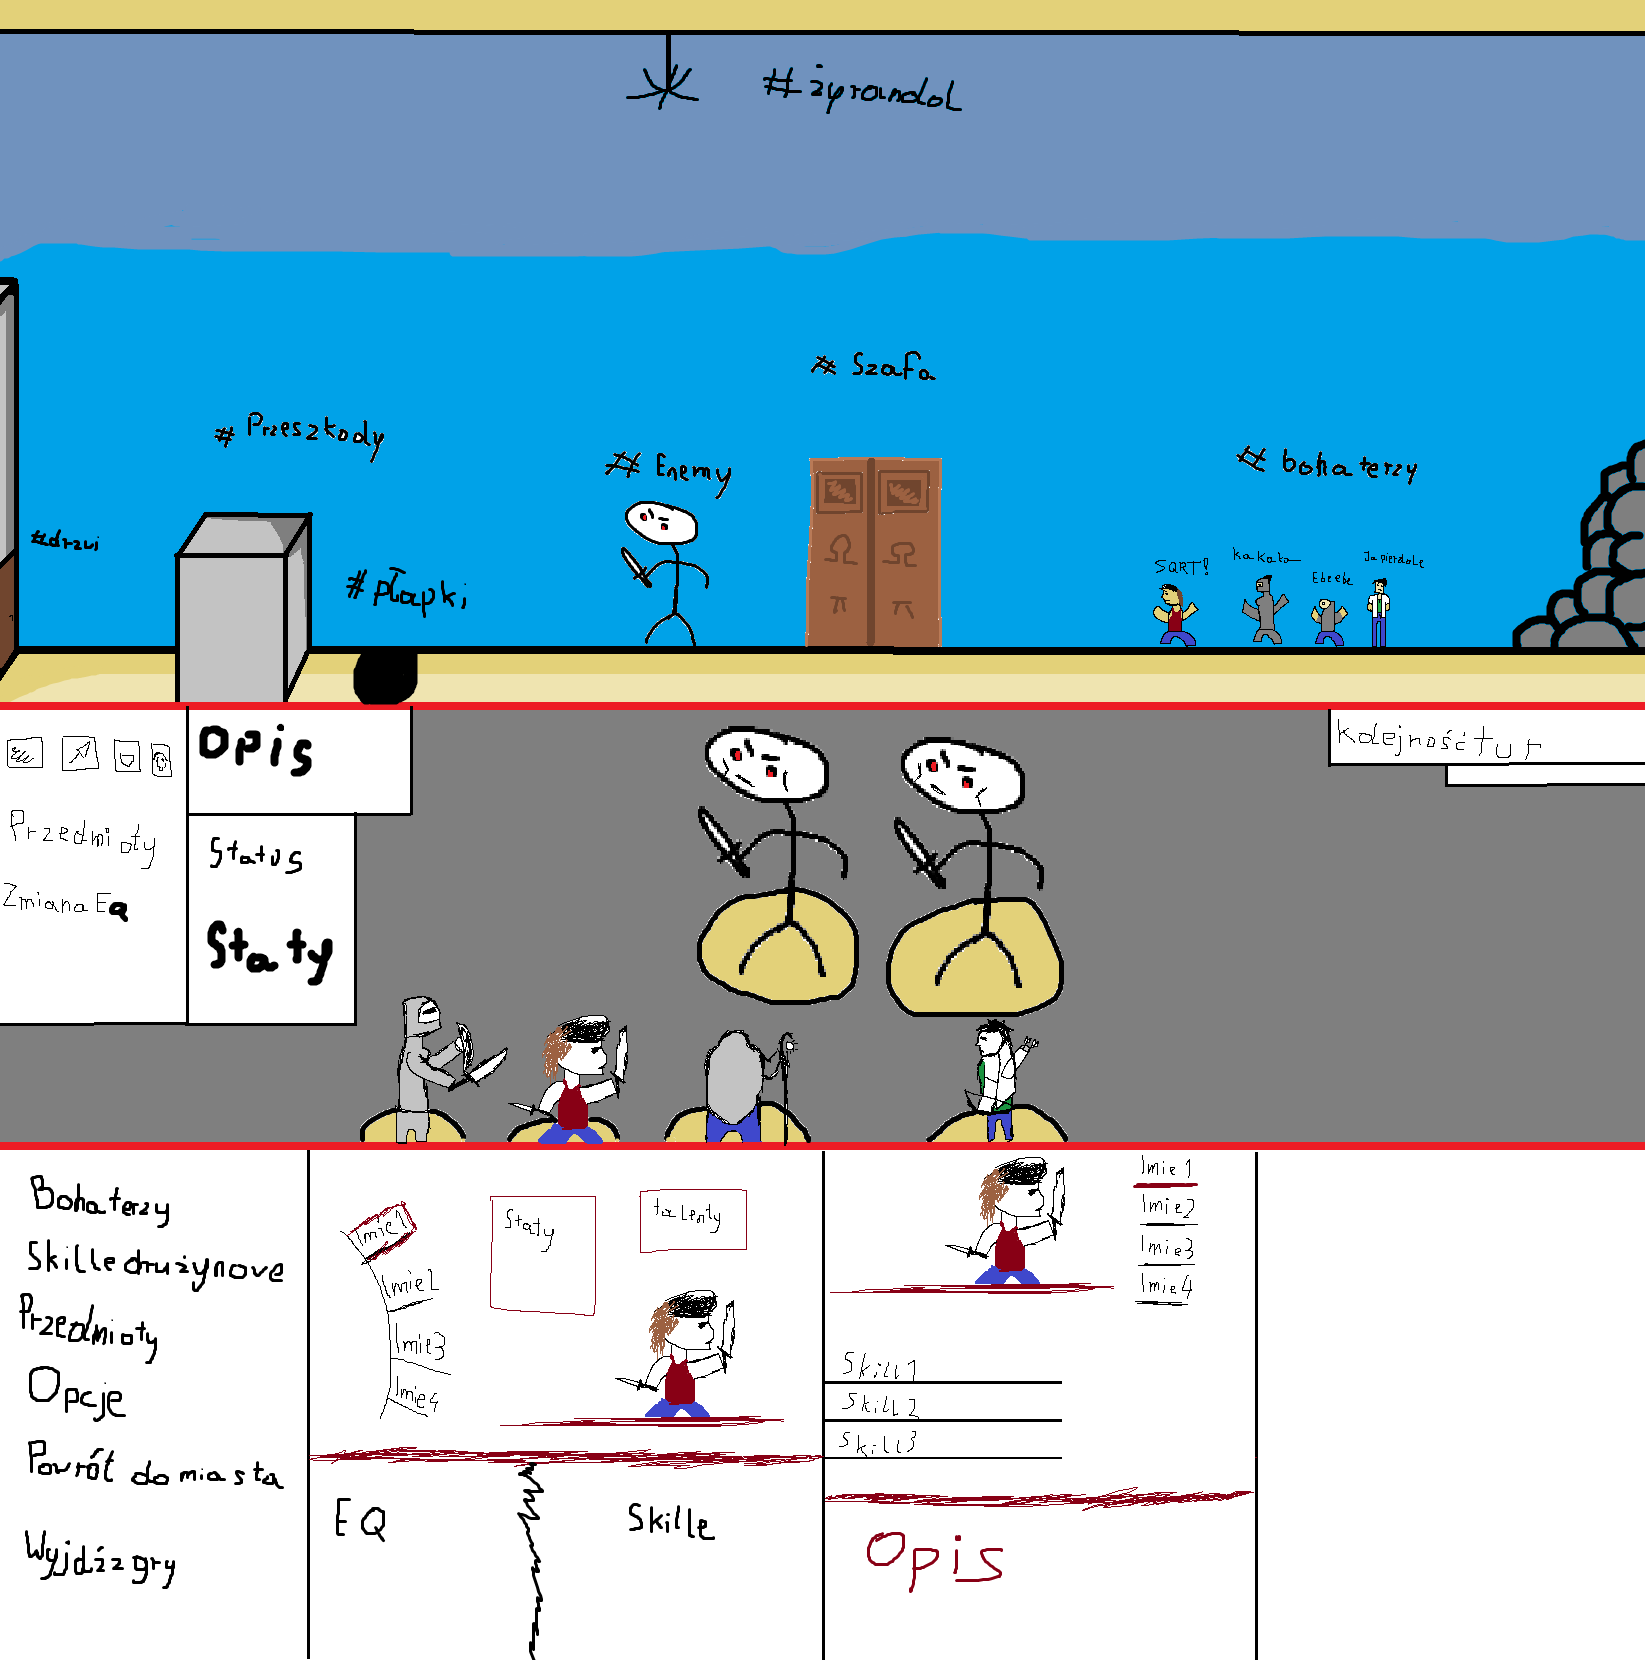 #żyrandol
# Szafa
# Przeszkody
# Enemy
# bohaterzy
#drzwi
#płapki
SQRT!
kakato
Ebeebe
Japierdole
Opis
kolejność tur
Przedmioty
Status
Zmiana EQ
Staty
Bohaterzy
Skille drużynowe
Przedmioty
Opcje
Powrót do miasta
Wyjdź z gry
Imie1
Imie2
Imie3
Imie4
Staty
talenty
EQ
Skille
Imie1
Imie2
Imie3
Imie4
Skill1
Skill2
Skill3
Opis